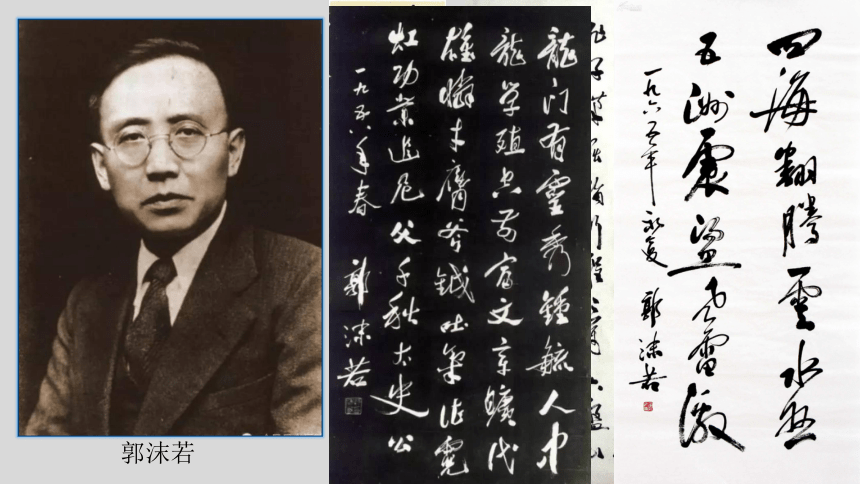 龍门有靈秀鍾毓人中
龍学殖空前富文章曠代
雄憐才膺斧鉞吐氣作霓
虹功業追尼父千秋太史公
一九五八年春 郭沫若
四海翻騰雲水怒
五洲震盪风雷激
一九六五年 郭沫若
郭沫若